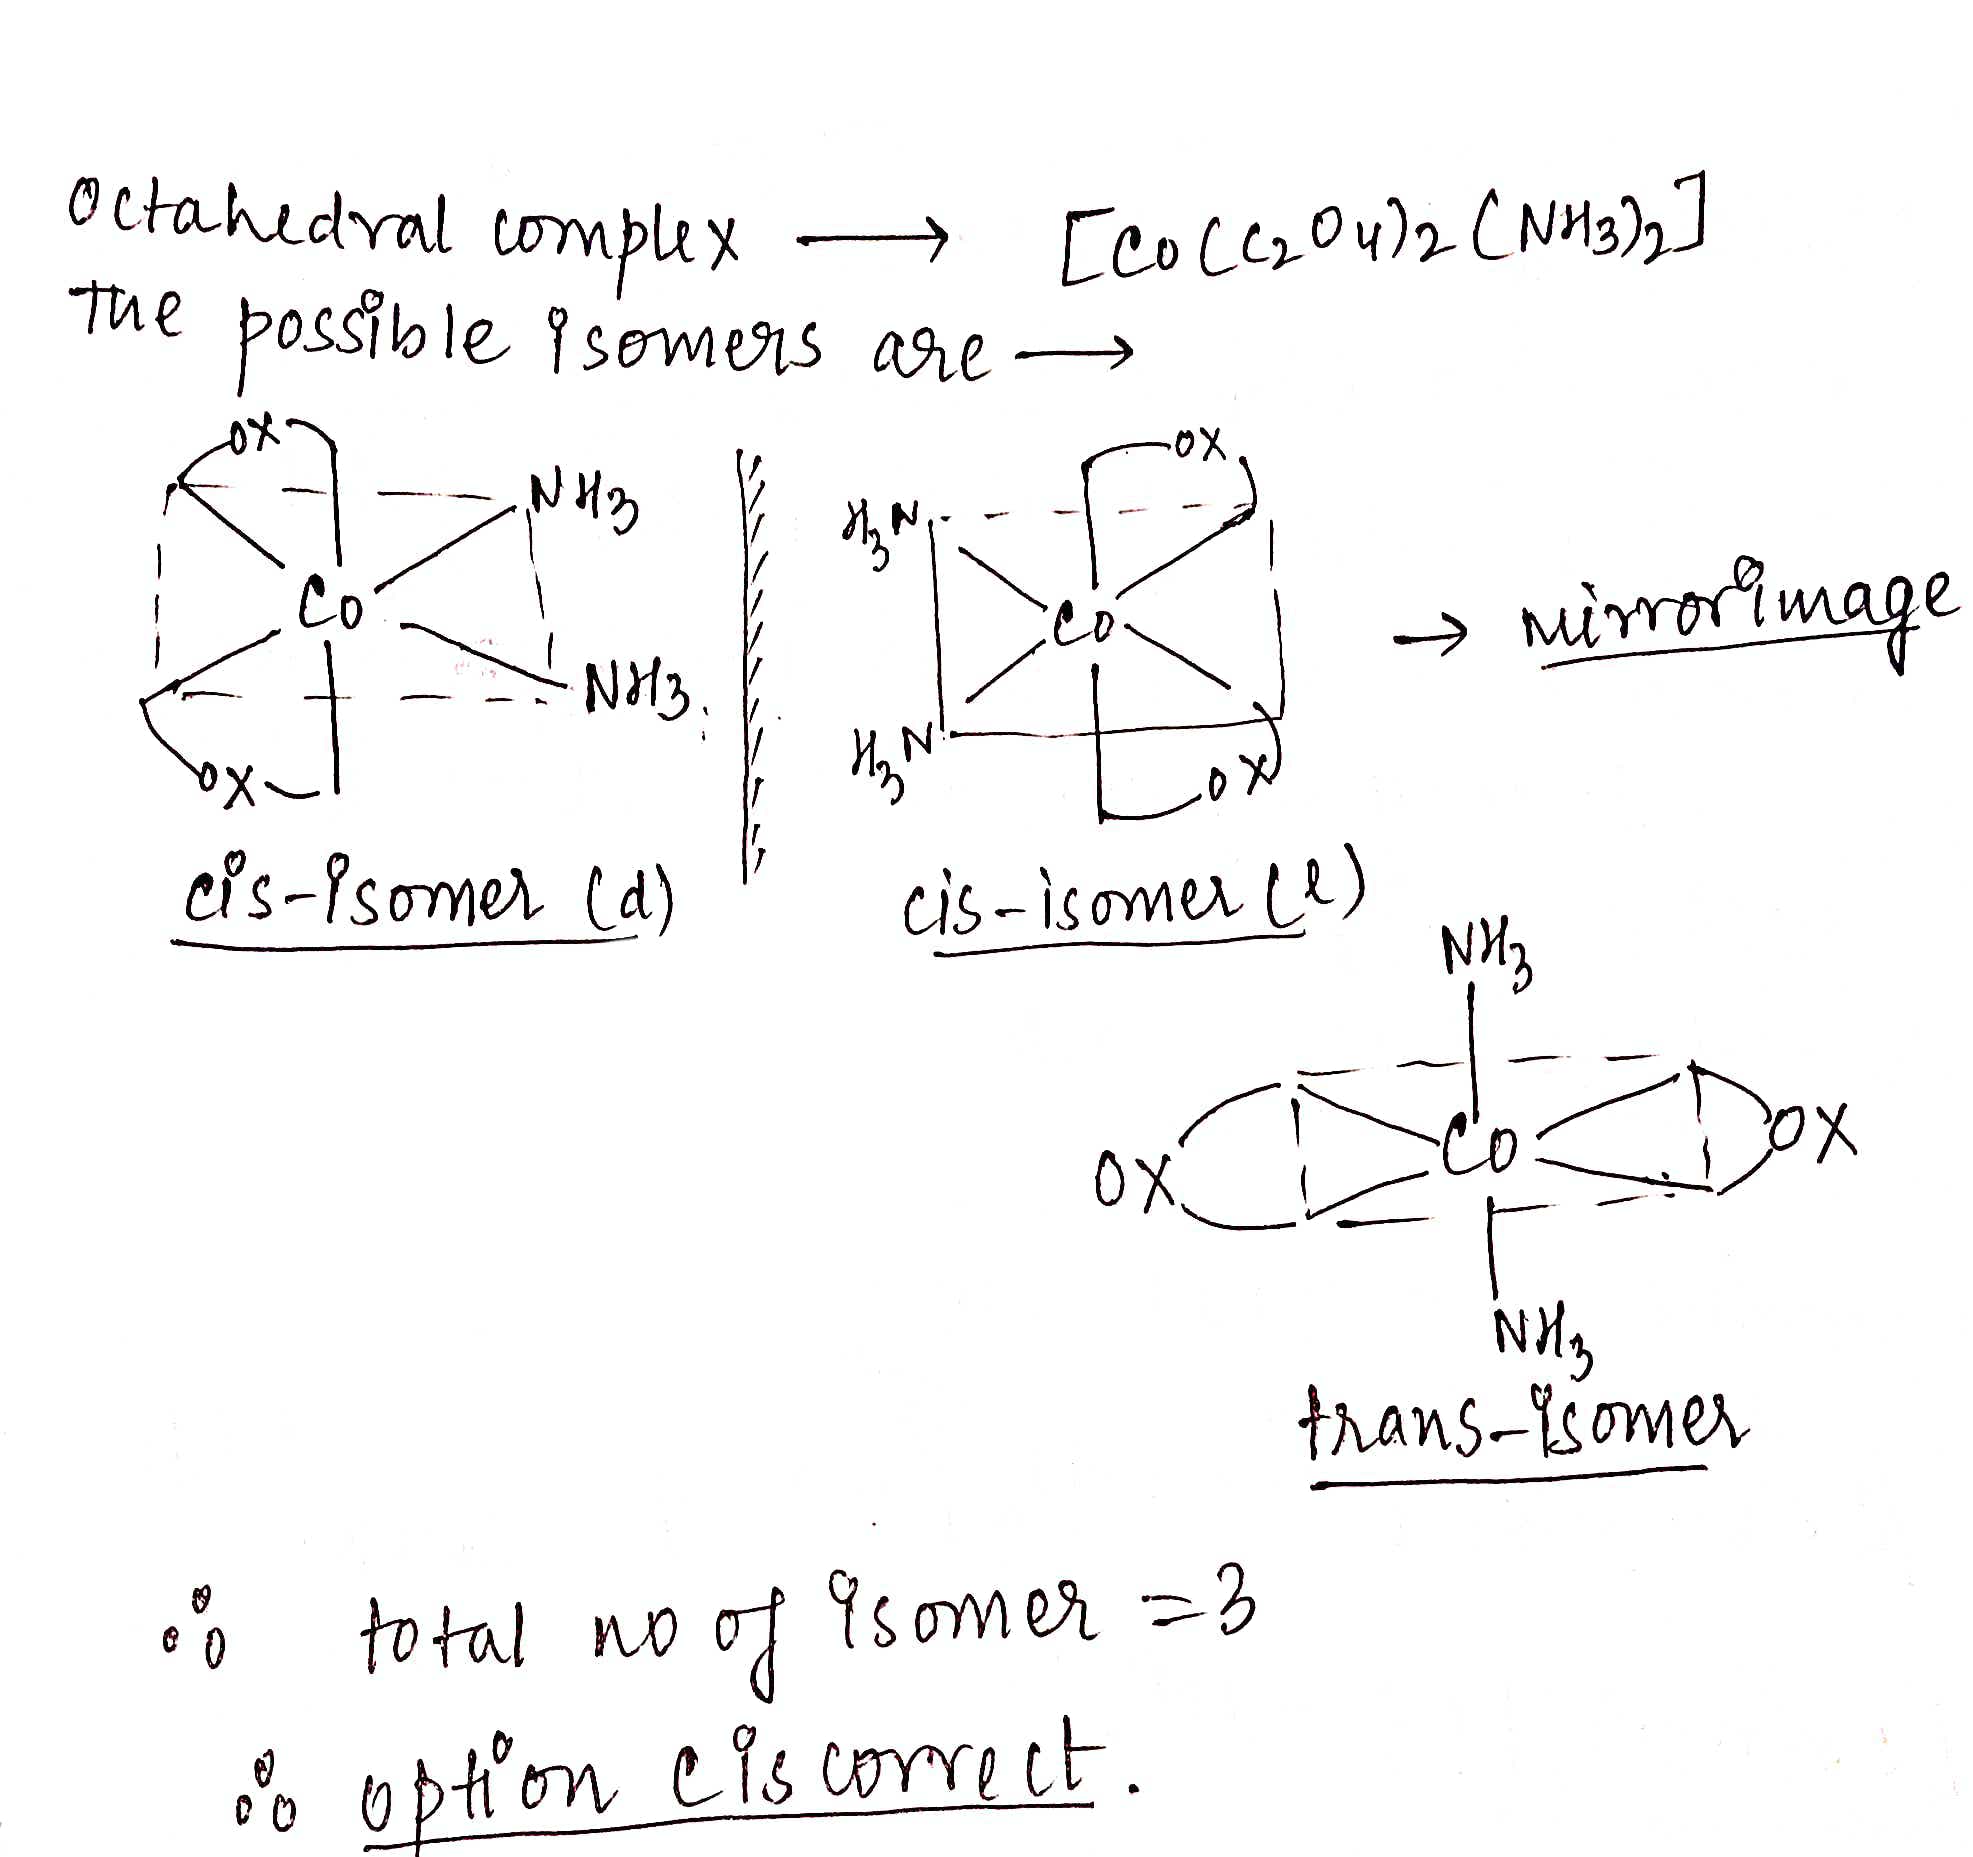 Octahedral complex ⟶ [Co(C2O4)2(NH3)2]
The possible isomers are ⟶
ox
ox
NH3
H3N
Co
Co
→ Mirrorimage
NH3
H3N
ox
ox
cis-isomer (d)
cis-isomer (l)
NH3
ox
Co
ox
NH3
trans-isomer
∴ total no of isomer = 3
∴ option c is correct.